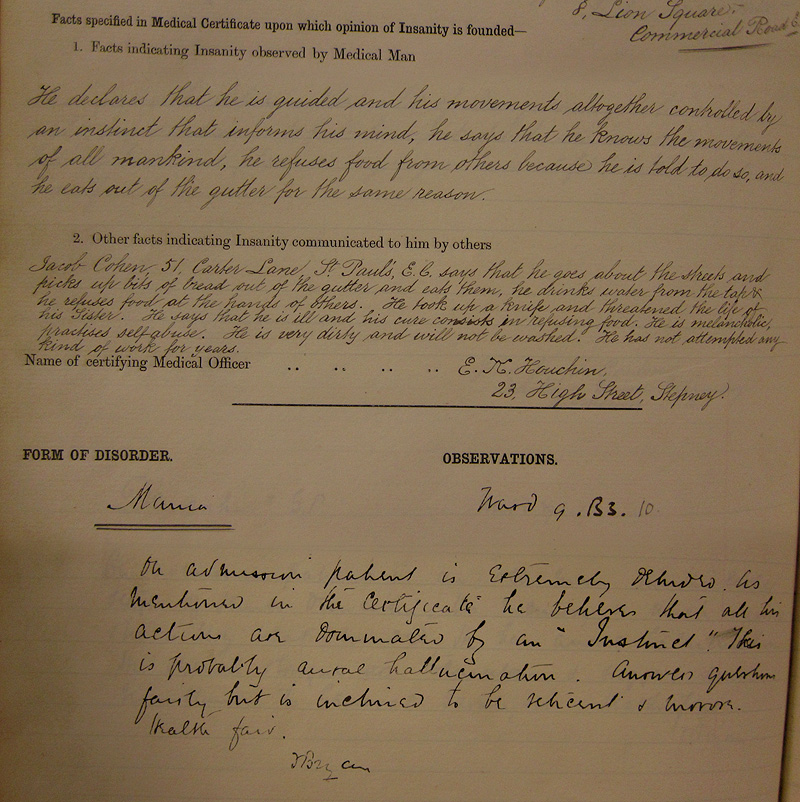 8, Lion Square,
Commercial Road E
Facts specified in Medical Certificate upon which opinion of Insanity is founded—
1. Facts indicating Insanity observed by Medical Man
He declares that he is guided and his movements altogether controlled by
an instinct that informs his mind, he says that he knows the movements
of all mankind, he refuses food from others because he is told to do so, and
he eats out of the gutter for the same reason.
2. Other facts indicating Insanity communicated to him by others
Jacob Cohen, 51, Carter Lane, St. Paul's, E.C. says that he goes about the streets and
picks up bits of bread out of the gutter and eats them, he drinks water from the tap &
he refuses food at the hands of others. He took up a knife and threatened the life of
his Sister. He says that he is ill and his cure consists in refusing food. He is melancholic,
practises selfabuse. He is very dirty and will not be washed. He has not attempted any
kind of work for years.
Name of certifying Medical Officer .. .. .. .. E. K. Houchin,
23, High Street, Stepney.
FORM OF DISORDER.
OBSERVATIONS.
Mania
Ward 9. B3. 10
On admission patient is extremely deluded. As
mentioned in the "Certificate" he believes that all his
actions are dominated by an "Instinct". This
is probably aural hallucination. Answers questions
fairly but is inclined to be reticent & morose.
Health fair.
JBryan